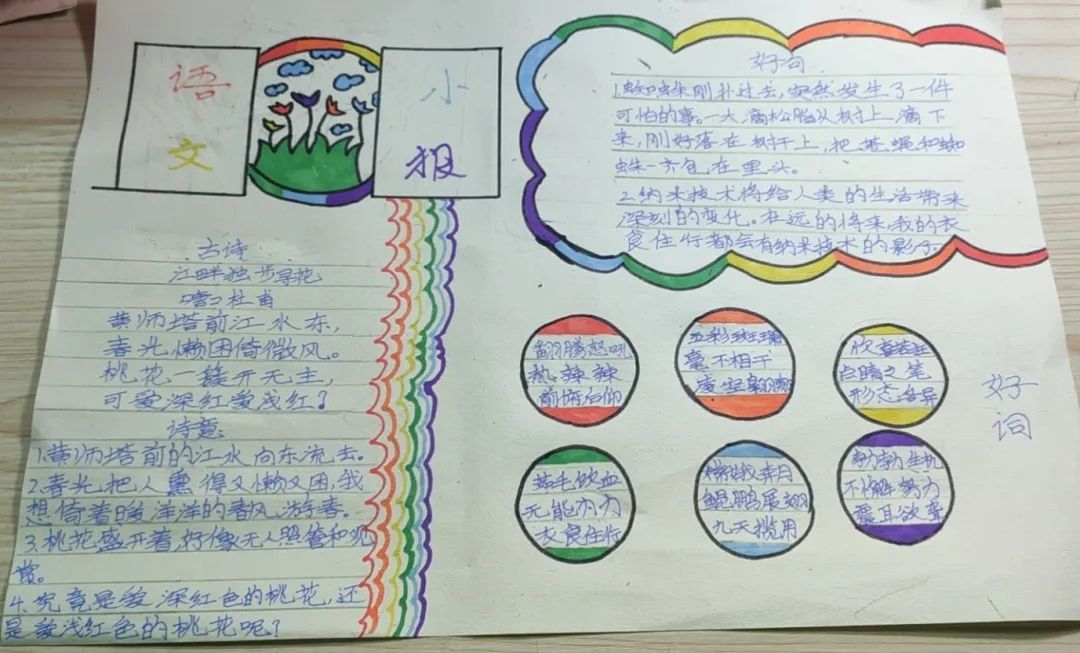 语
文
小
报
古诗
江畔独步寻花
[唐]杜甫
黄师塔前江水东,
春光懒困倚微风。
桃花一簇开无主,
可爱深红爱浅红?
诗意
1.黄师塔前的江水向东流去。
2.春光把人熏得又懒又困,我
想倚着暖洋洋的春风游春。
3.桃花盛开着,好像无人照管和观
赏。
4.究竟是爱深红色的桃花,还
是爱浅红色的桃花呢?
好句
1.蜘蛛刚扑过去,突然发生了一件
可怕的事。一大滴松脂从树上滴下
来,刚好落在树干上,把苍蝇和蜘
蛛一齐包在里头。
2.纳米技术将给人类的生活带来
深刻的变化。在远的将来,我的衣
食住行都会有纳米技术的影子。
翻腾怒吼
热辣辣
前俯后仰
五彩斑斓
毫不相干
点睛之笔
形态各异
茹毛饮血
无能为力
衣食住行
嫦娥奔月
鲲鹏展翅
九天揽月
勃勃生机
不懈努力
震耳欲聋
好
词